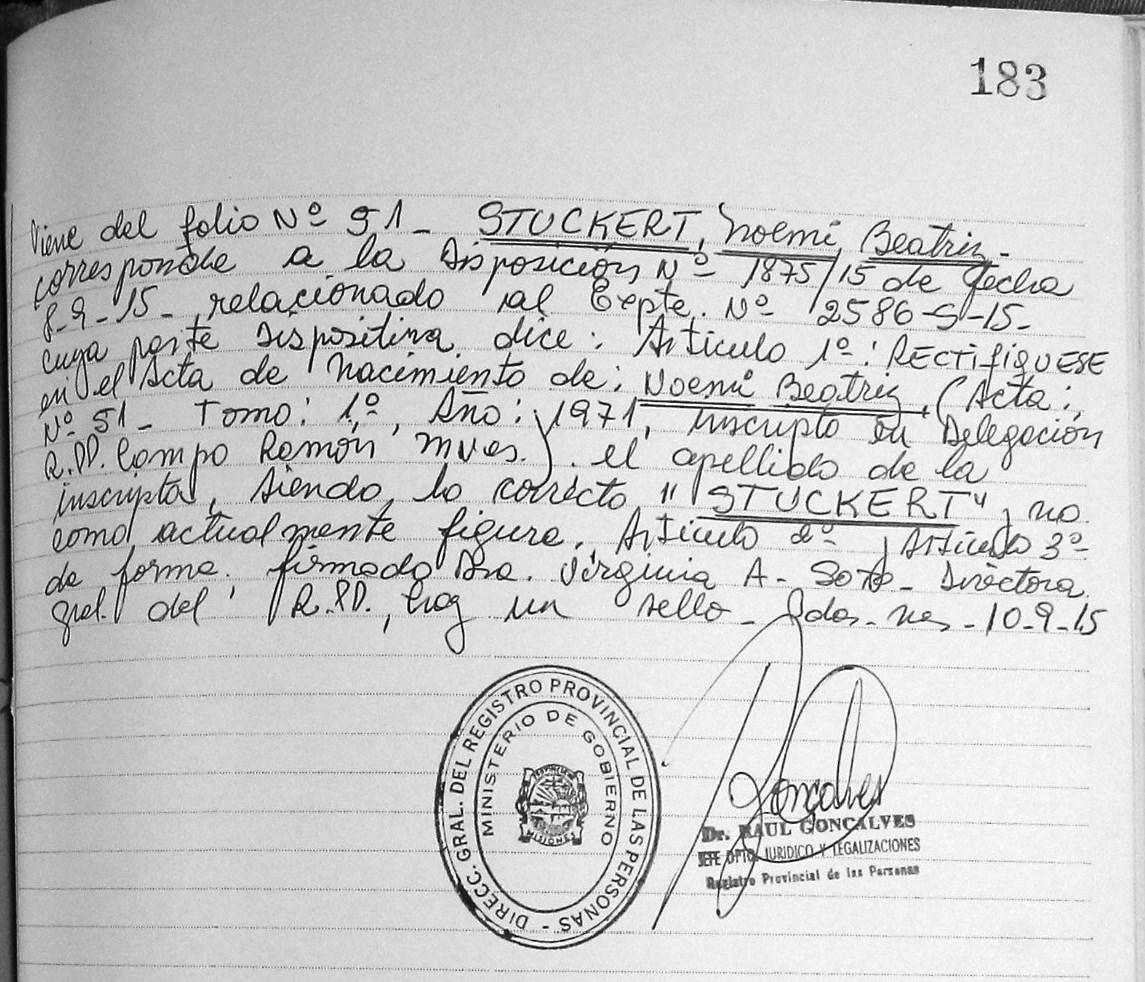 183
Viene del folio Nº 51 - STUCKERT, Noemí Beatriz -
corresponde a la Disposición Nº 1875/15 de fecha
8-9-15 - relacionado al Expte. Nº 2586-S-15 -
cuya parte dispositiva dice: Artículo 1º: RECTIFIQUESE
en el Acta de Nacimiento de: Noemí Beatriz, (Acta:
Nº 51 - Tomo: 1º, Año: 1971, inscripto en Delegación
R.PP. Campo Ramón Mnes.). el apellido de la
inscripta, siendo lo correcto "STUCKERT", no
como actualmente figura. Artículo 2º, Artículo 3º
de forma. firmado Dra. Virginia A. Soto - Directora
gral. del R.PP., hay un sello - Pdas. - Mnes - 10-9-15
DIRECC. GRAL. DEL REGISTRO PROVINCIAL DE LAS PERSONAS -
MINISTERIO DE GOBIERNO
MISIONES
Gonçalves
Dr. RAUL GONCALVES
JEFE DPTO. JURIDICO Y LEGALIZACIONES
Registro Provincial de las Personas